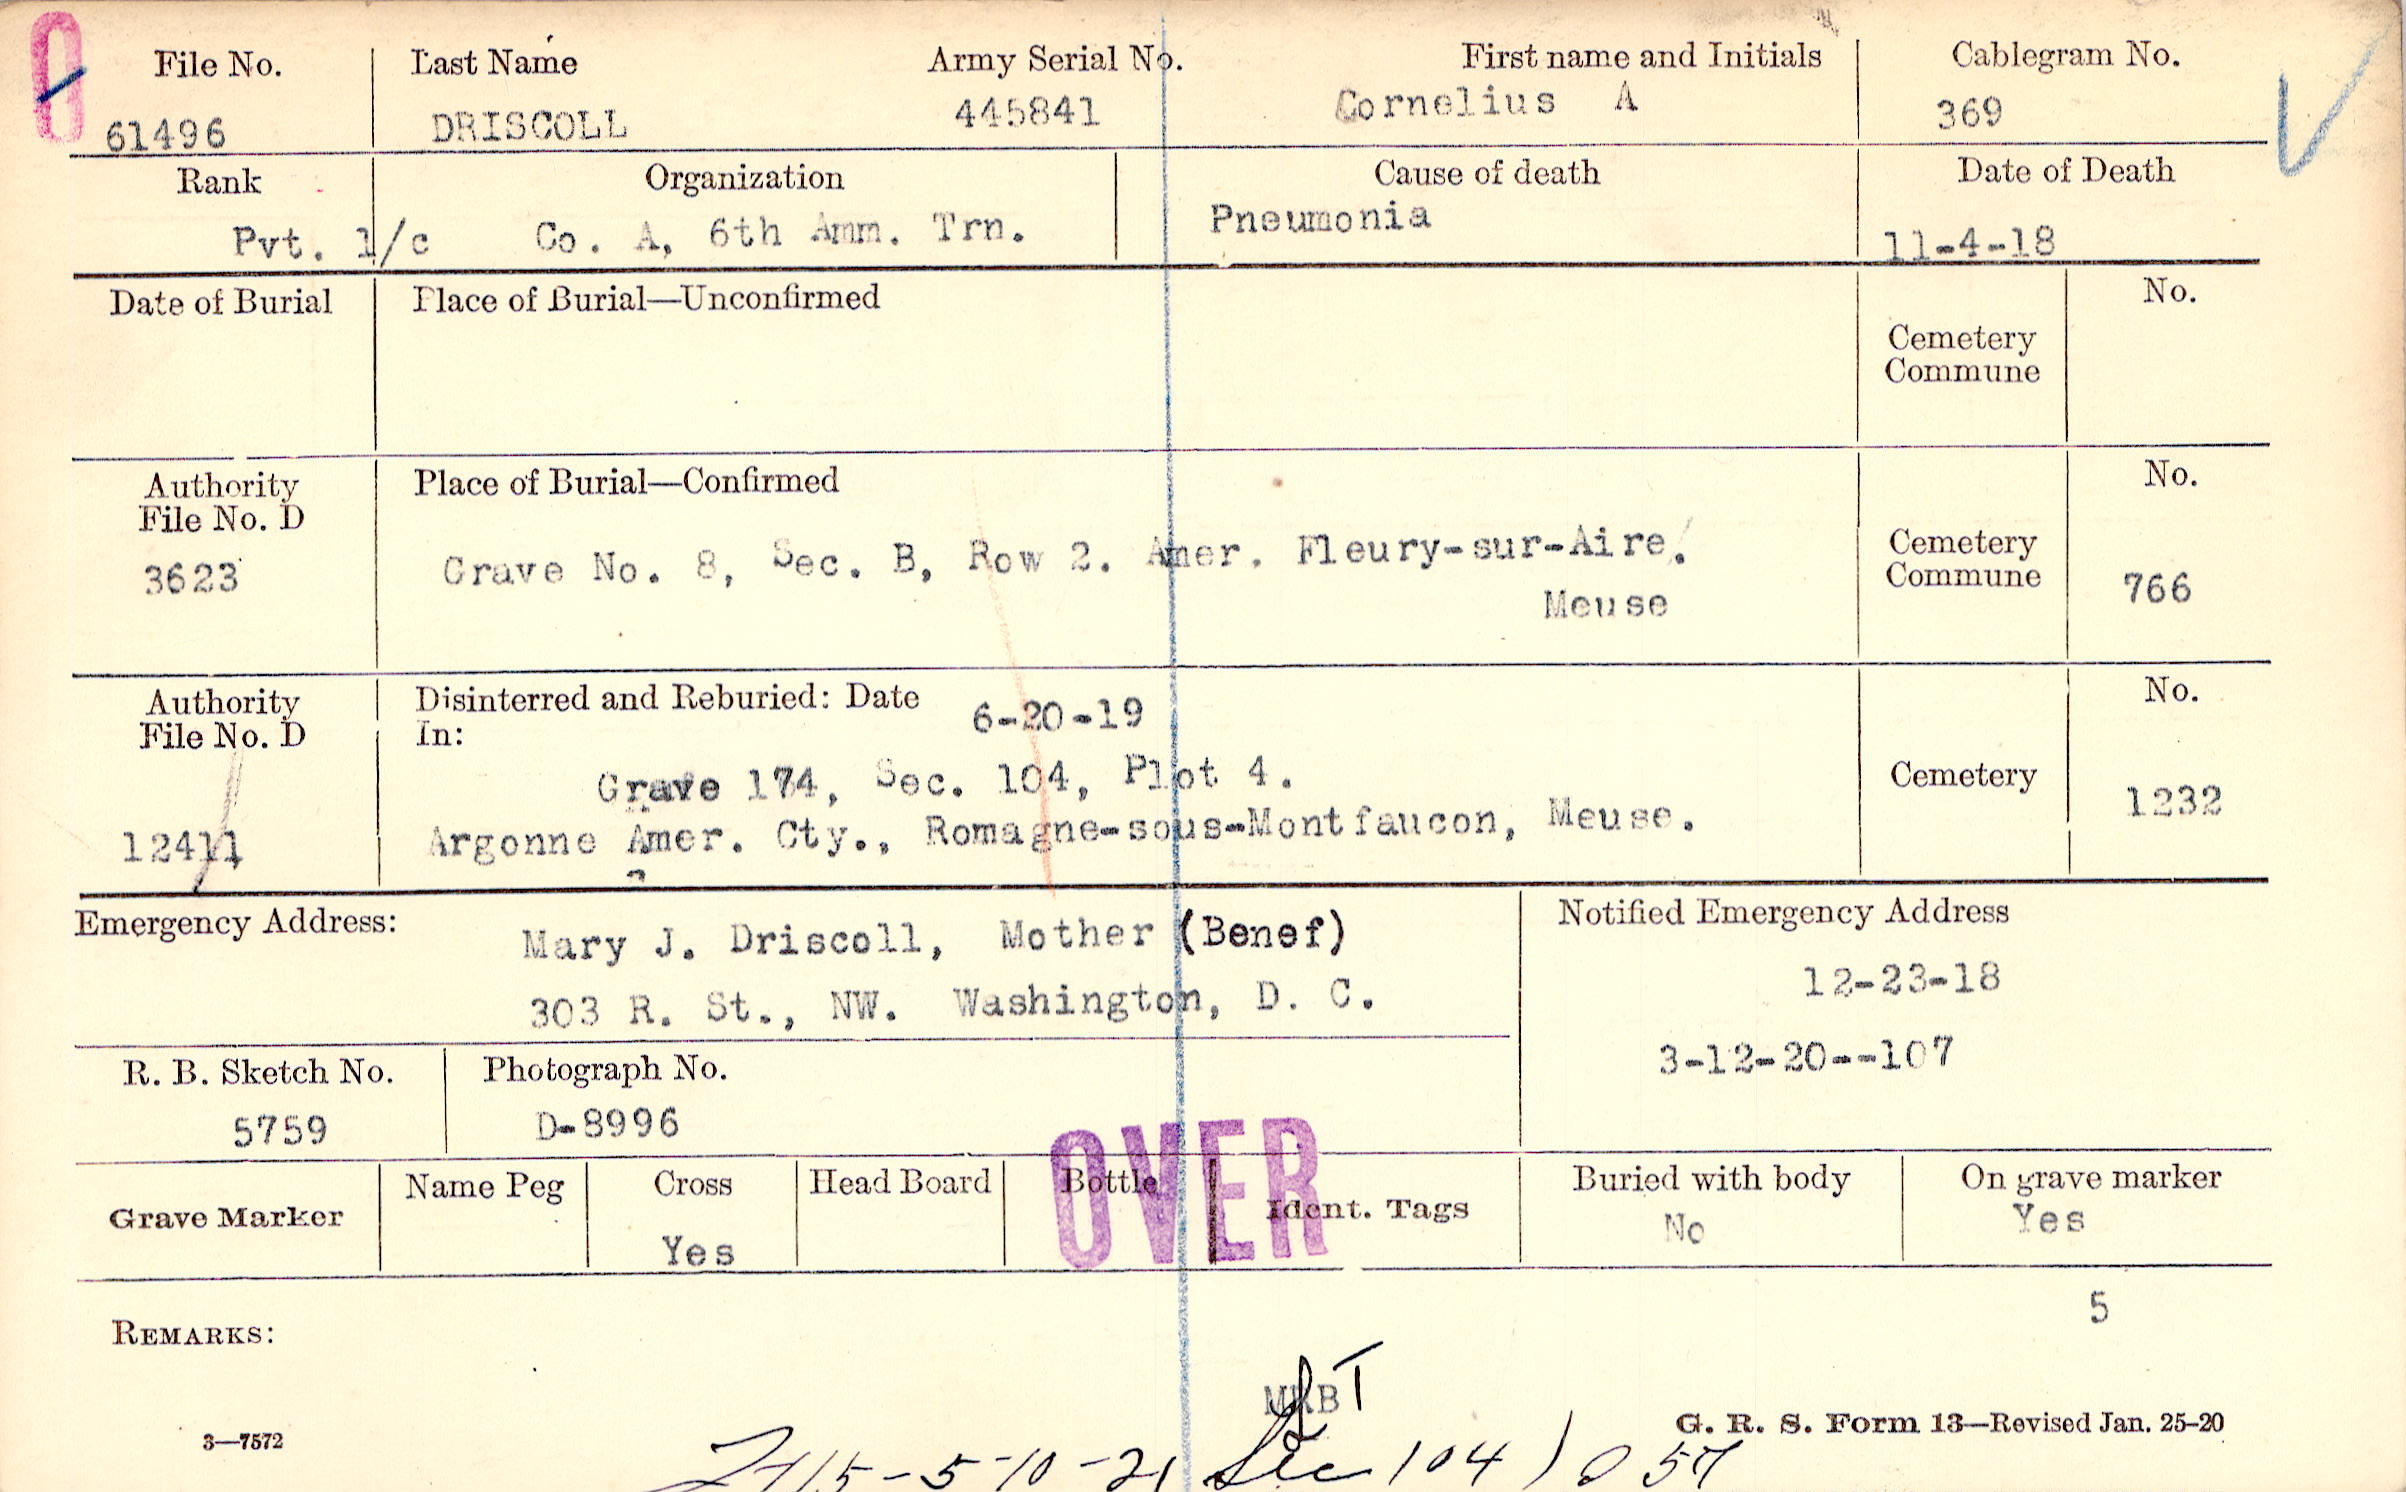 File No. Last Name Army Serial No. First name and Initials Cablegram No.
61496 DRISCOLL 445841 Cornelius A 369
Rank Organization Cause of death Date of Death
Pvt. 1/c Co. A, 6th Amm. Trn. Pneumonia 11-4-18
Date of Burial Place of Burial—Unconfirmed No.
Cemetery
Commune
Authority Place of Burial—Confirmed No.
File No. D
Cemetery
3623 Grave No. 8, Sec. B, Row 2. Amer. Fleury-sur-Aire. Commune 766
Meuse
Authority Disinterred and Reburied: Date 6-20-19 No.
File No. D In:
Grave 174, Sec. 104, Plot 4. Cemetery 1232
12411 Argonne Amer. Cty., Romagne-sous-Montfaucon, Meuse.
Emergency Address: Mary J. Driscoll, Mother (Benef) Notified Emergency Address
303 R. St., NW. Washington, D. C. 12-23-18
3-12-20--107
R. B. Sketch No. Photograph No.
5759 D-8996
OVER
Grave Marker Name Peg Cross Head Board Bottle Ident. Tags Buried with body On grave marker
Yes No Yes
5
REMARKS:
3—7572 G. R. S. Form 13—Revised Jan. 25-20
5-10-21 Sec 104